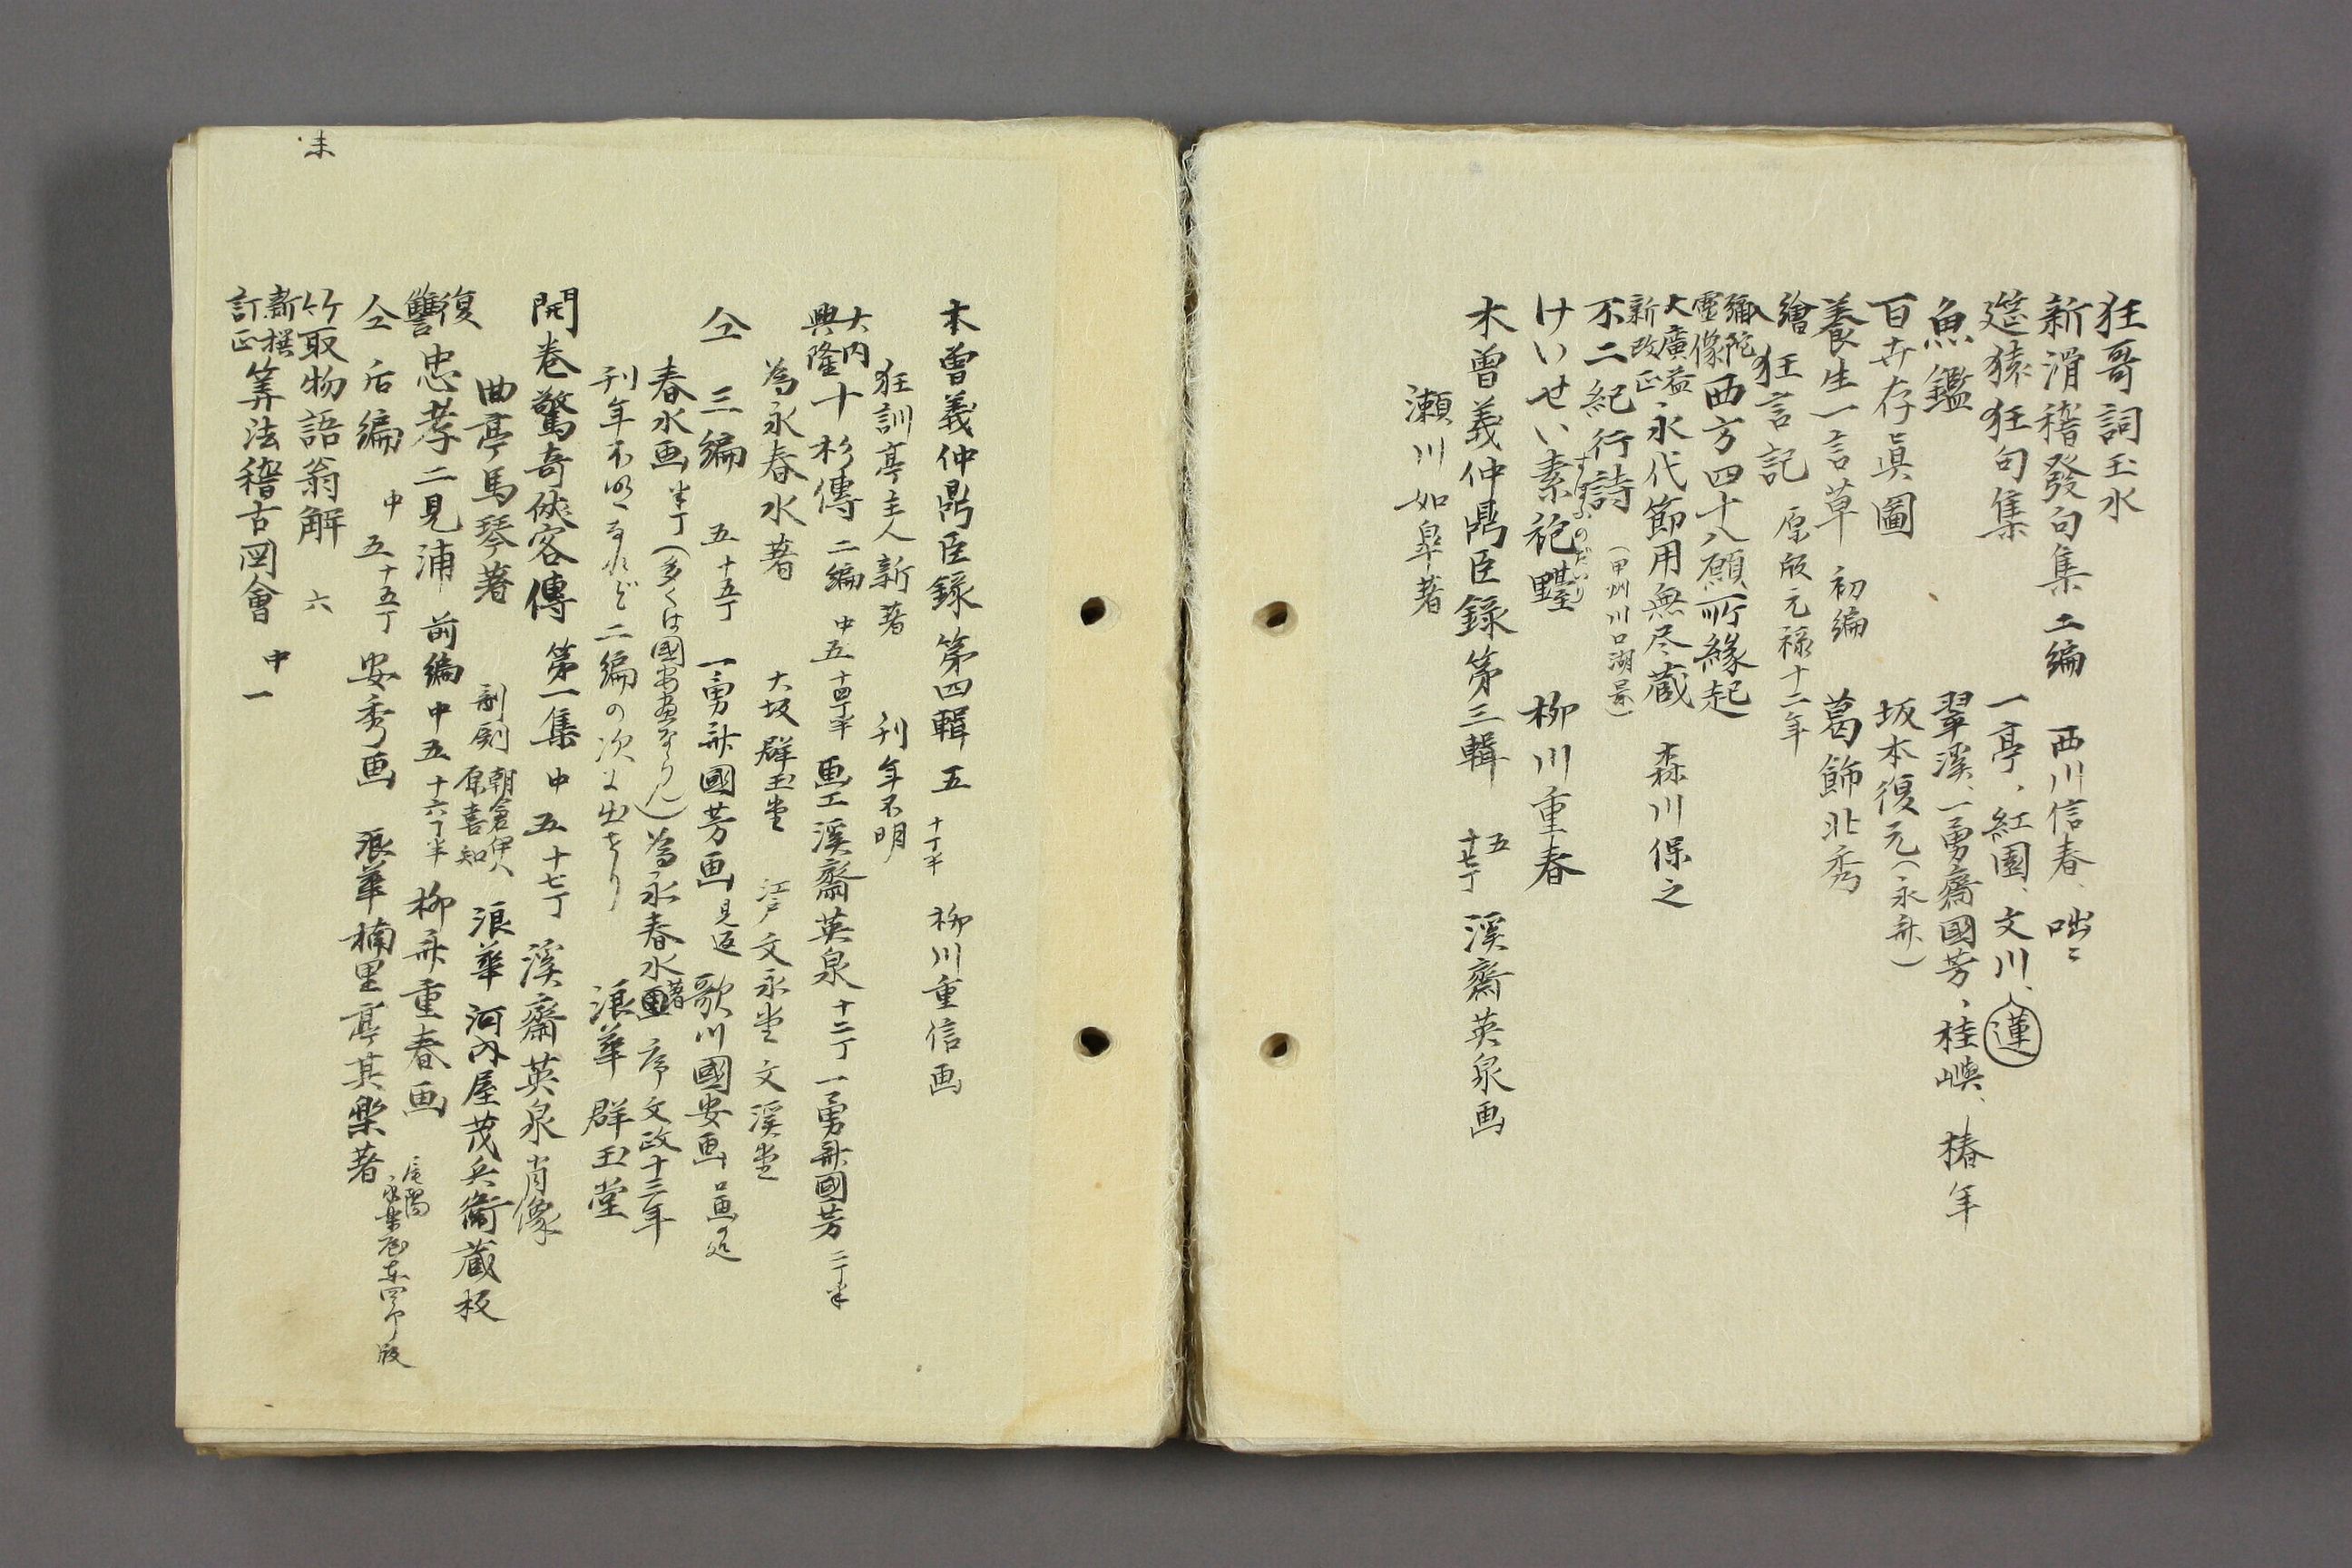 狂哥詞玉水
新滑稽發句集 二編 西川信春、咄々
筵猿狂句集 一亭、紅園、文川、蓮
魚鑑 翠溪、一勇齋國芳、桂嶼、椿年
百卉存眞圖 坂本復元(永斎)
養生一言草 初編 葛飾北秀
繪狂言記 原版元禄十二年
彌陀靈像西方四十八願所緣起
大廣益新改正永代節用無尽蔵 森川保之
不二紀行詩 (甲州川口湖景)
けいせい素袍䑓 柳川重春
木曽義仲鼎臣錄第三輯 五 十七丁 溪齋英泉画
瀬川如皐著
木曽義仲鼎臣錄第四輯 五 十丁半 柳川重信画
狂訓亭主人新著 刊年不明
大内興隆十杉傳 二編 中五 十四丁半 画工溪齋英泉 十二丁 一勇斎國芳 二丁半
為永春水著 大坂群玉堂 江戸文永堂 文溪堂
仝 三編 五 十五丁 一勇斎國芳画 見返 歌川國安画 口画の処
春水画 半丁(多くは國安画ならん) 為永春水著 序文政十三年
刊年不明なれど二編の次に出せり 浪華 群玉堂
開卷驚奇俠客傳 第一集 中 五 十七丁 溪齋英泉肖像
曲亭馬琴著 剞劂 朝倉伊八 原喜知 浪華 河内屋茂兵衞藏板
復讐忠孝二見浦 前編 中五 十六丁半 柳斎重春画
仝 后編 中 五 十五丁 安秀画 浪華楠里亭其樂著 尾陽 永楽屋東四郎版
竹取物語翁解 六
新撰訂正算法稽古図會 中 一
未